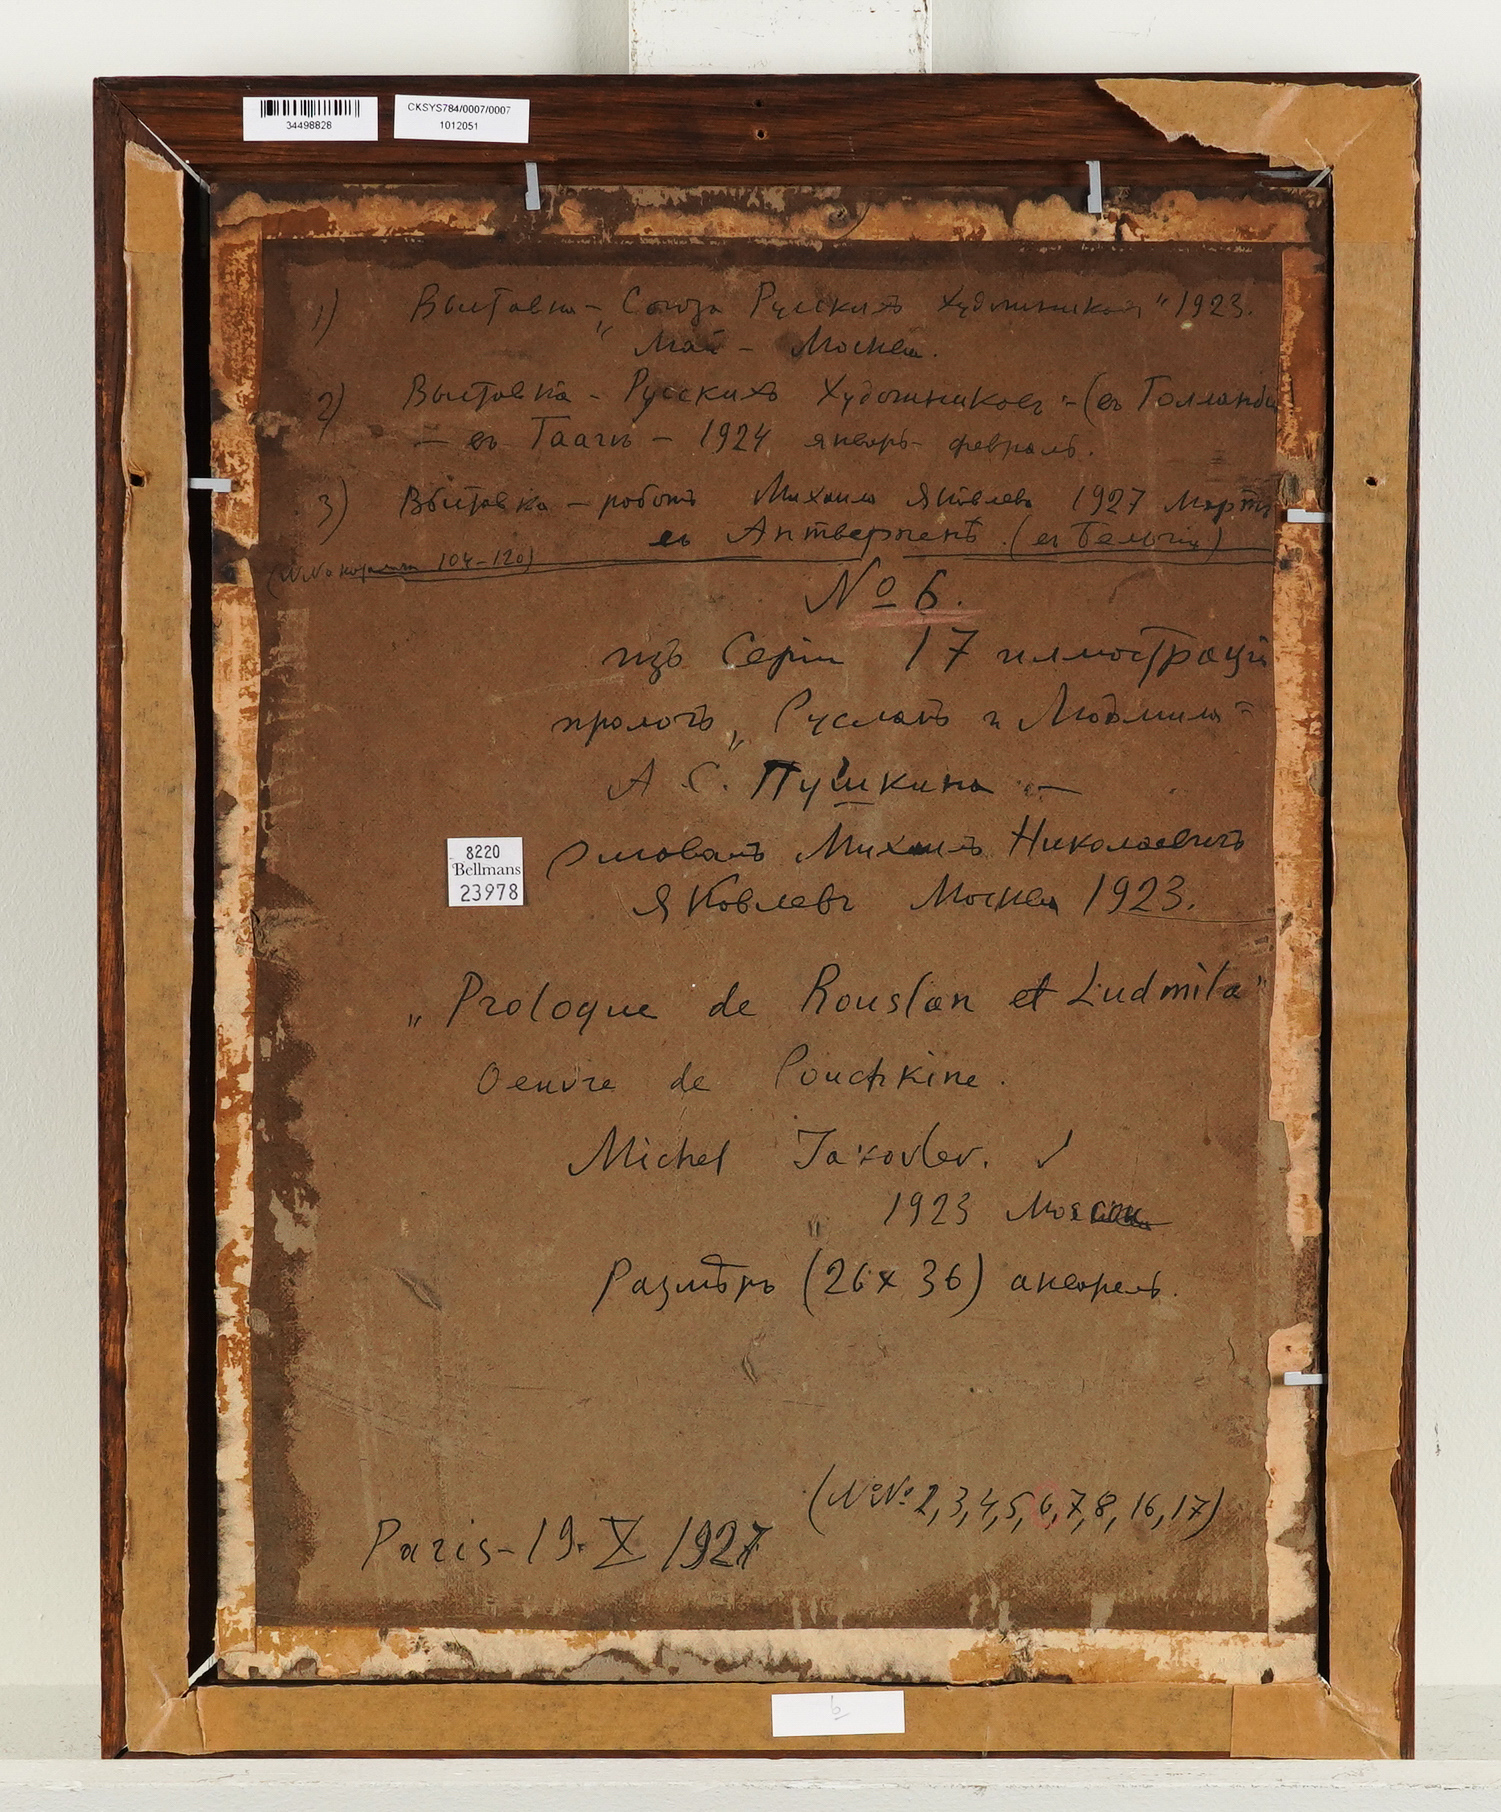 34498828
CKSYS784/0007/0007
1012051
1) Выставка - „Союза Русскихъ Художниковъ" 1923.
Май - Москва.
2) Выставка - Русскихъ Художниковъ - (въ Голландіи
- въ Гаагѣ - 1924 январь - февраль.
3) Выставка - работъ Михаила Яковлева 1927 Мартъ
въ Антверпенѣ. (въ Бельгіи)
(№№ 104-120)
№ 6.
изъ Серіи 17 иллюстрацій
прологъ „Русланъ и Людмила"
А. С. Пушкина -
рисовалъ Михаилъ Николаевичъ
Яковлевъ Москва 1923.
8220
Bellmans
23978
„Prologue de Rouslan et Ludmila"
Oeuvre de Pouchkine.
Michel Jakovlev. ✓
1923
Размѣръ (26 x 36) акварель.
(№№ 2, 3, 4, 5, 6, 7, 8, 16, 17)
Paris - 19. X 1927
6